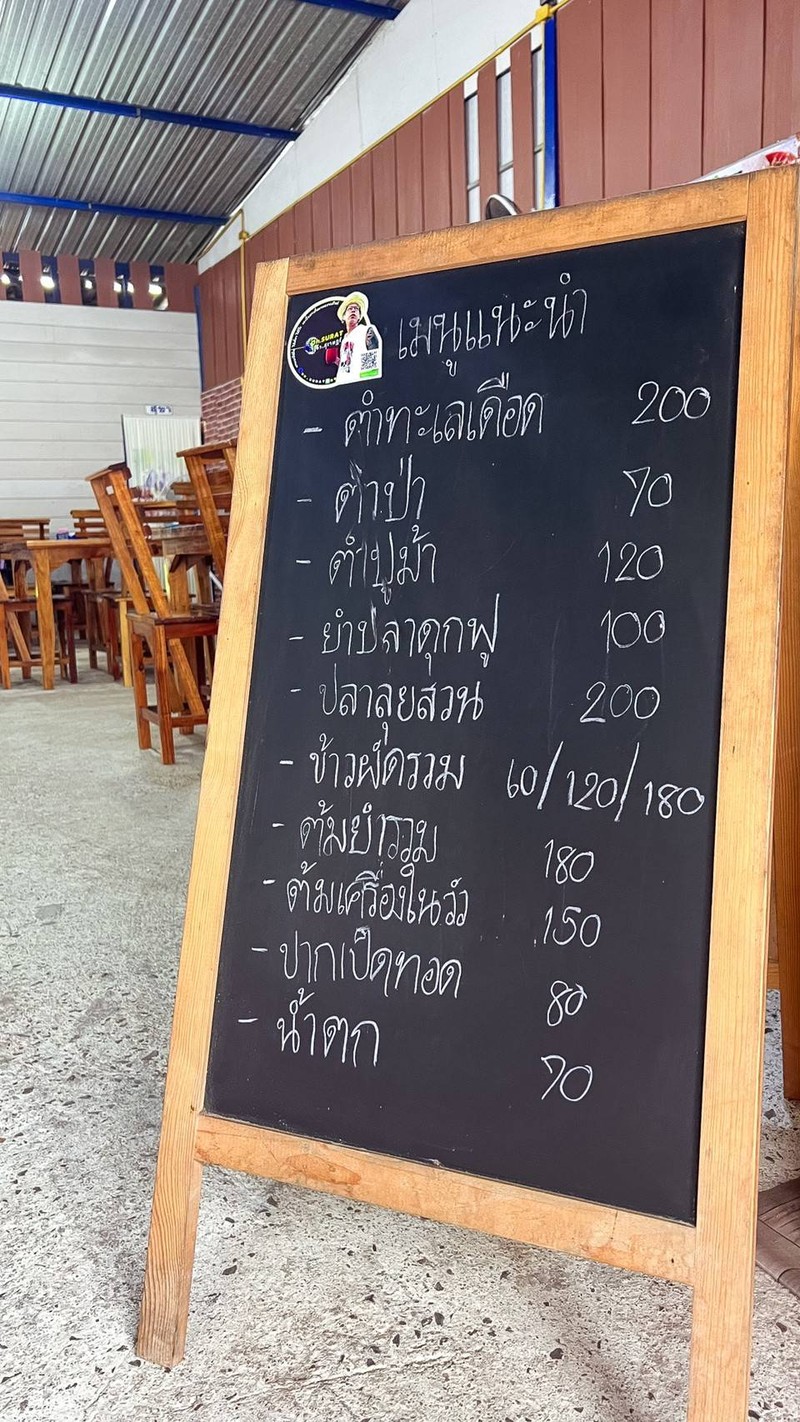 เมนูแนะนำ
- ตำทะเลเดือด 200
- ตำป่า 70
- ตำปูม้า 120
- ยำปลาดุกฟู 100
- ปลาลุยสวน 200
- ข้าวผัดรวม 60/120/180
- ต้มยำรวม 180
- ต้มเครื่องในวัว 150
- ปากเป็ดทอด 80
- น้ำตก 70
DR.SURAT